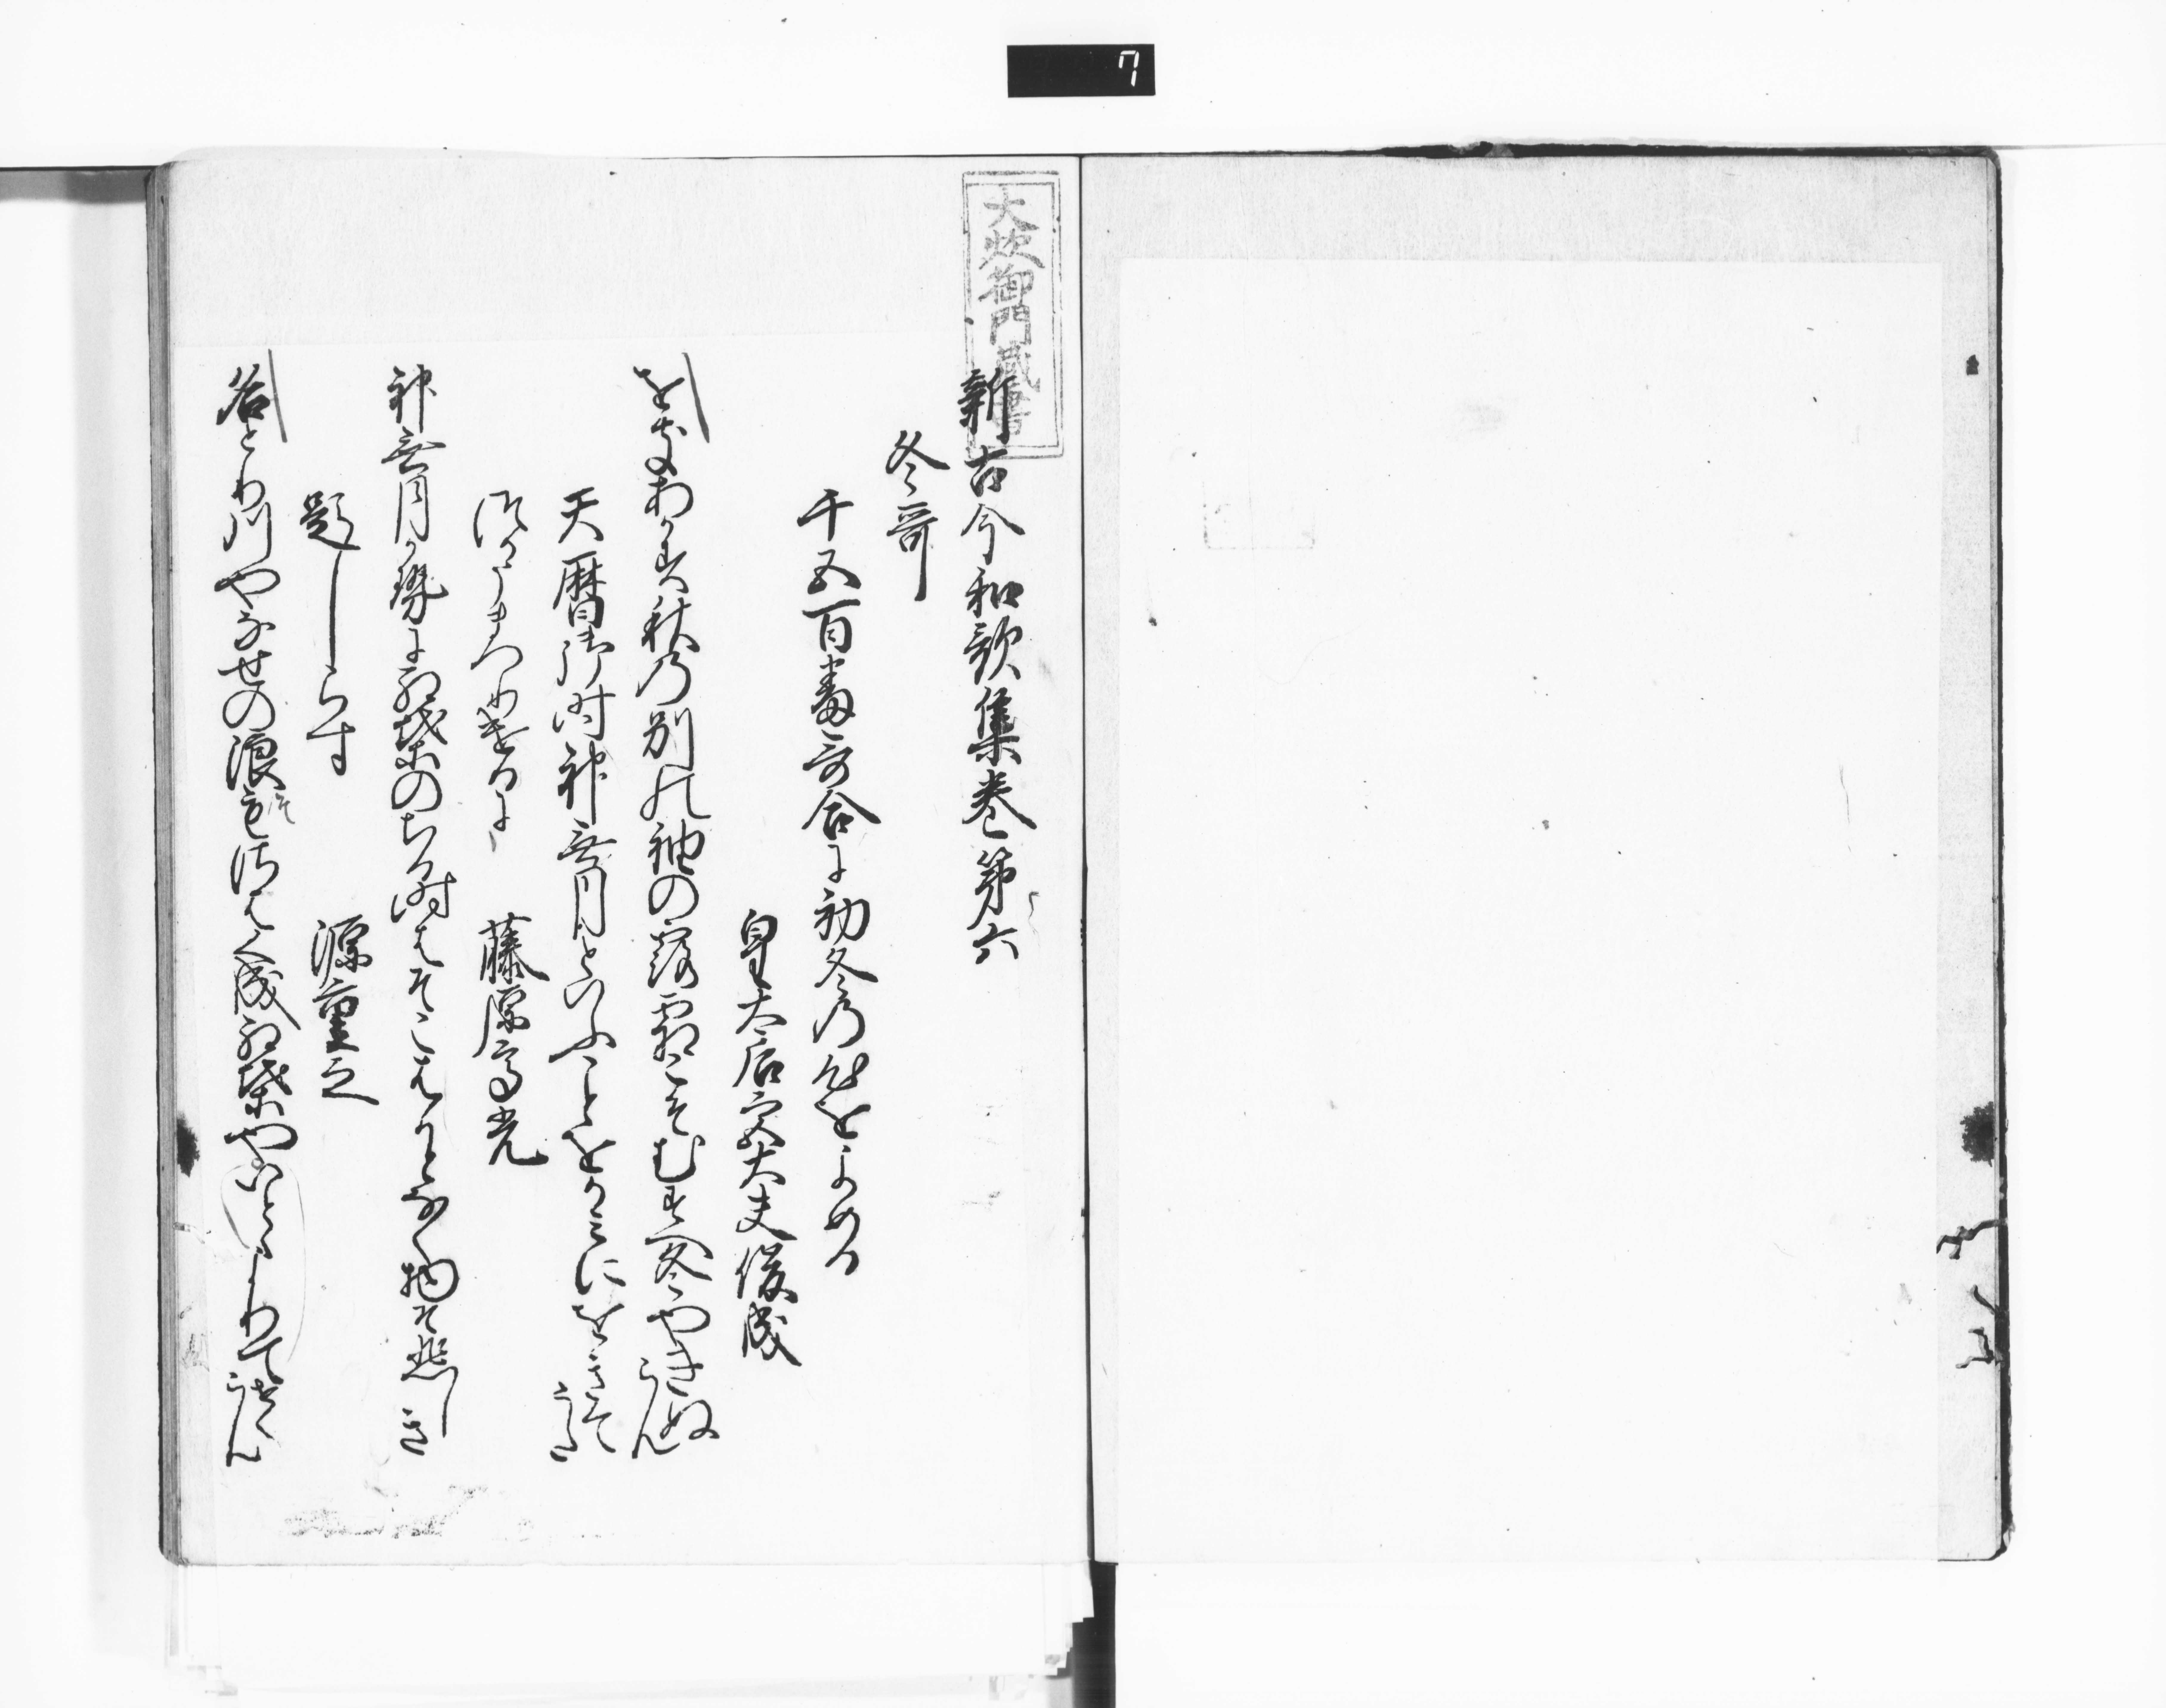 7
大炊御門蔵書
新古今和歌集巻第六
冬哥
千五百番哥合に初冬の心をよめる
皇太后宮大夫俊成
をきあかす秋の別の袖の露霜こそむすへ冬やきぬらん
天暦御時神無月といふことをかみにをきてうた
つかうまつりけるに
藤原高光
神無月風に紅葉のちる時はそこはかとなく物そ悲しき
題しらす
源重之
名とり川やなせの浪そさはく成紅葉やいとゝよりてせくらん